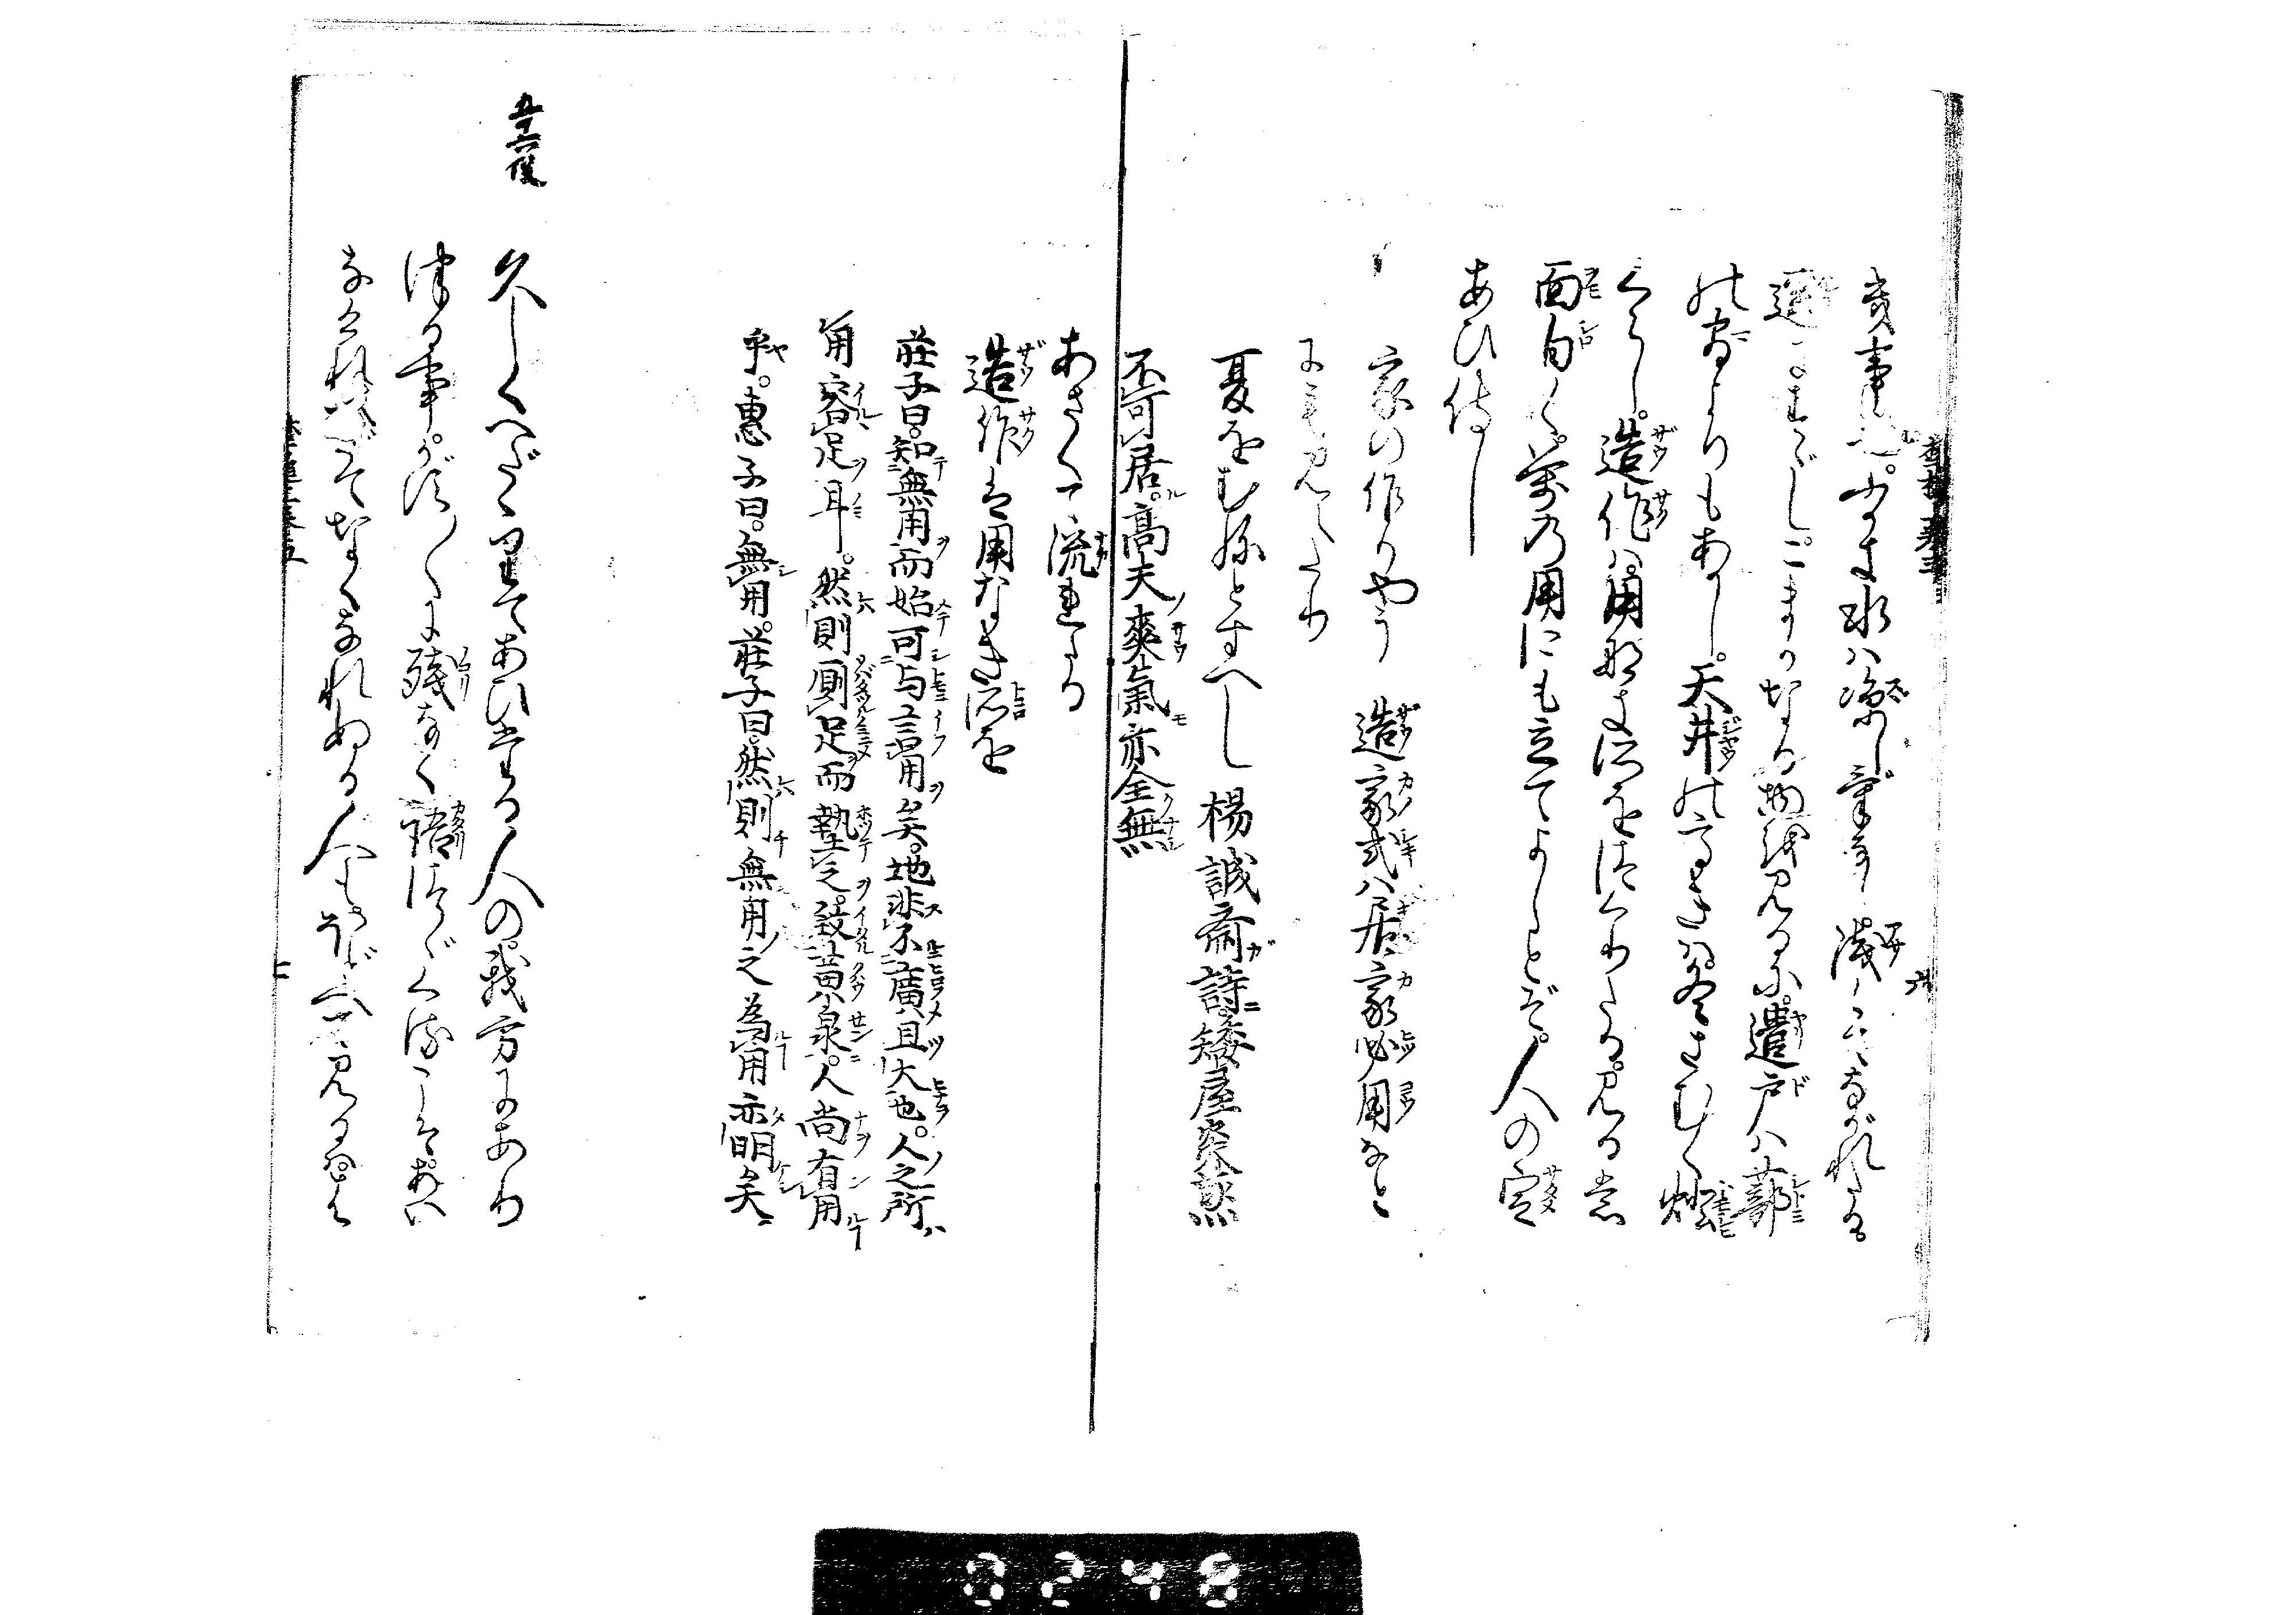 き事也。ふかき水ハ凉しげなし。浅くてながれたる。
遥にすゞし。こまかなる物を見るに。遣戸ハ蔀
の間よりもあかし。天井の高きハ。冬さむく燈
くらし。造作ハ。用なき所をつくりたる。見るも
面白く。萬の用にも立てよしとぞ。人の定
あひ侍し
家の作りやう　造家式ハ居家必用なと
にも見えたり
夏をむねとすへし　楊誠斎詩矮屋炎蒸
不可居。高天爽氣亦全無
あさくて流れたる
造作は用なき所を
荘子曰。知無用而始可与言用矣。地非不廣且大也。人之所
用容足耳。然則厠足而墊之。致黄泉。人尚有用
乎。惠子曰。無用。荘子曰。然則無用之為用亦明矣
五十六段
久しくへだゝりてあひたる人の。我方にあり
つる事。かず〱に残なく語つゞくるこそ。あい
なけれ。へだてなくなれぬる人も。ほどへて見るハ。は
七
0248